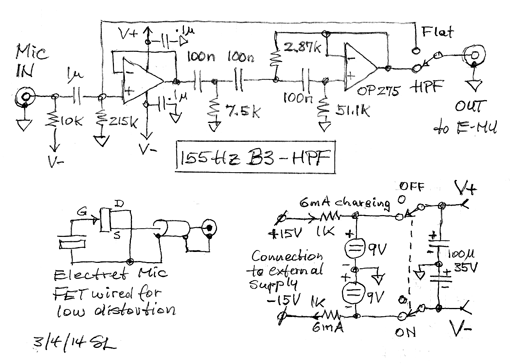 Mic
IN
V+
.1µ
1µ
10K
V-
215K
.1µ
V-
100n
100n
7.5K
2.87K
100n
51.1K
OP275
Flat
HPF
OUT
to E-MU
155Hz B3-HPF
G
D
S
Electret Mic
FET wired for
low distortion
3/4/14 SL
6mA charging
+15V
1K
9V
Connection
to external
supply
-15V
1K
6mA
9V
OFF
V+
100µ
35V
V-
ON